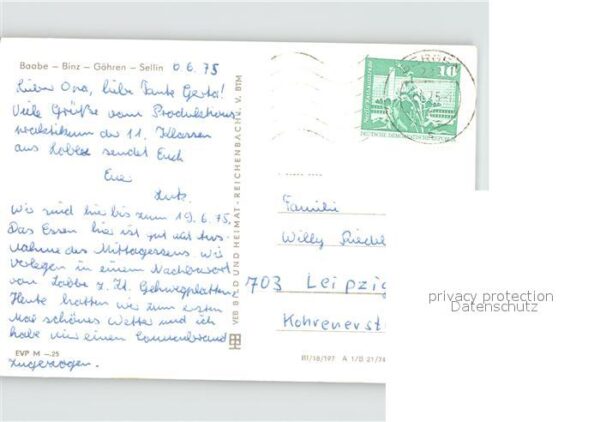 Baabe – Binz – Göhren – Sellin
0 6. 75
Liebe Oma, liebe Tante Gerta!
Viele Grüße vom Produktions-
praktikum der 11. Klassen
aus sendet Euch
Eure
Wir sind hier bis zum 19.6.75.
Das Essen hier ist gut mit Aus-
nahme des Mittagessens. Wir
verlegen in einem Nachbarort
von z. Zt. Gehwegplatten.
Heute hatten wir zum ersten
Mal schönes Wetter und ich
habe mir einen Sonnenbrand
zugezogen.
EVP M –.25
VEB BILD UND HEIMAT · REICHENBACH i. V. BTM
10
DEUTSCHE DEMOKRATISCHE
Familie
Willy Riedel
703 Leipzig
Kohrenerst
B1/18/197 A 1/B 21/74
privacy protection
Datenschutz